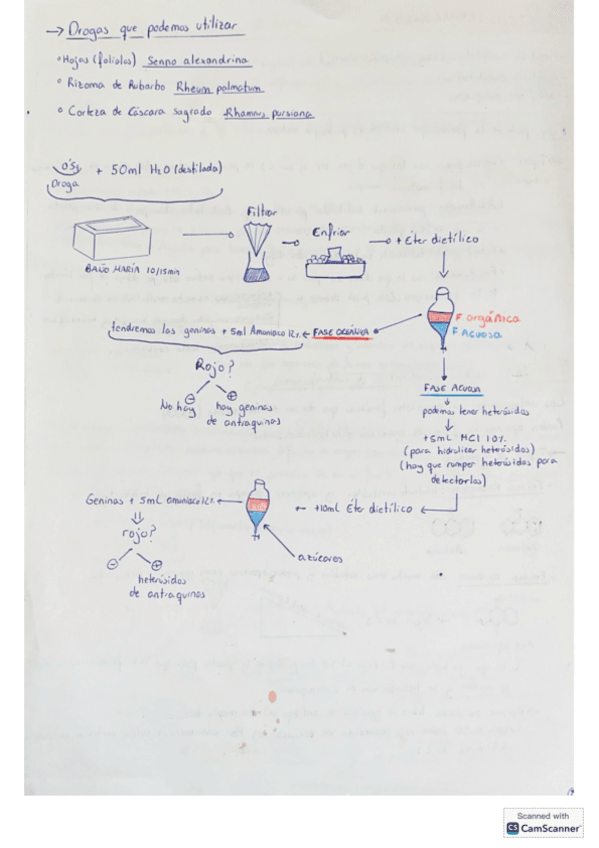 → Drogas que podemos utilizar
• Hojas (folíolos) Senna alexandrina
• Rizoma de Ruibarbo Rheum palmatum
• Corteza de Cáscara sagrada Rhamnus pursiana
0'5g + 50ml H2O (destilada)
Droga
Filtrar
Enfriar
+ Éter dietílico
BAÑO MARÍA 10/15min
F orgánica
F Acuosa
tendremos las geninas + 5ml Amoniaco 12% ← FASE ORGÁNICA
Rojo?
⊖ ⊕
No hay
hay geninas
de antraquinas
FASE ACUOSA
podemos tener heterósidos
+5mL HCl 10%
(para hidrolizar heterósidos)
(hay que romper heterósidos para
detectarlas)
Geninas + 5mL amoniaco 12%
← +10ml Éter dietílico
rojo?
⊖ ⊕
azúcares
heterósidos
de antraquinas
Scanned with
CS CamScanner